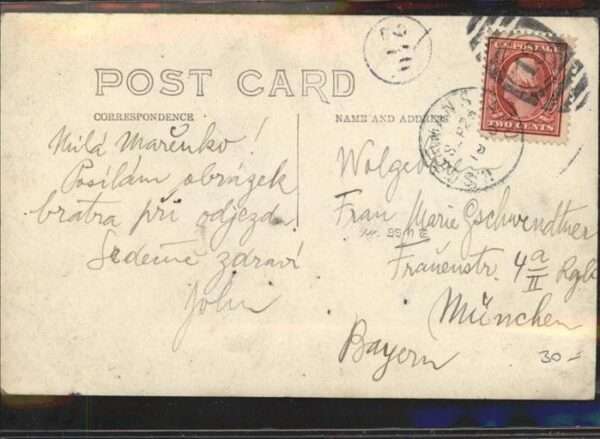 POST CARD
CORRESPONDENCE
NAME AND ADDRESS
U.S. POSTAGE
TWO CENTS
Milá Mařenko!
Posílám obrázek
bratra při odjezdu
Srdečně zdraví
John
Frau Marie Gschwendtner
Frauenstr. 4 a/II Rgb
München
Bayern
30=